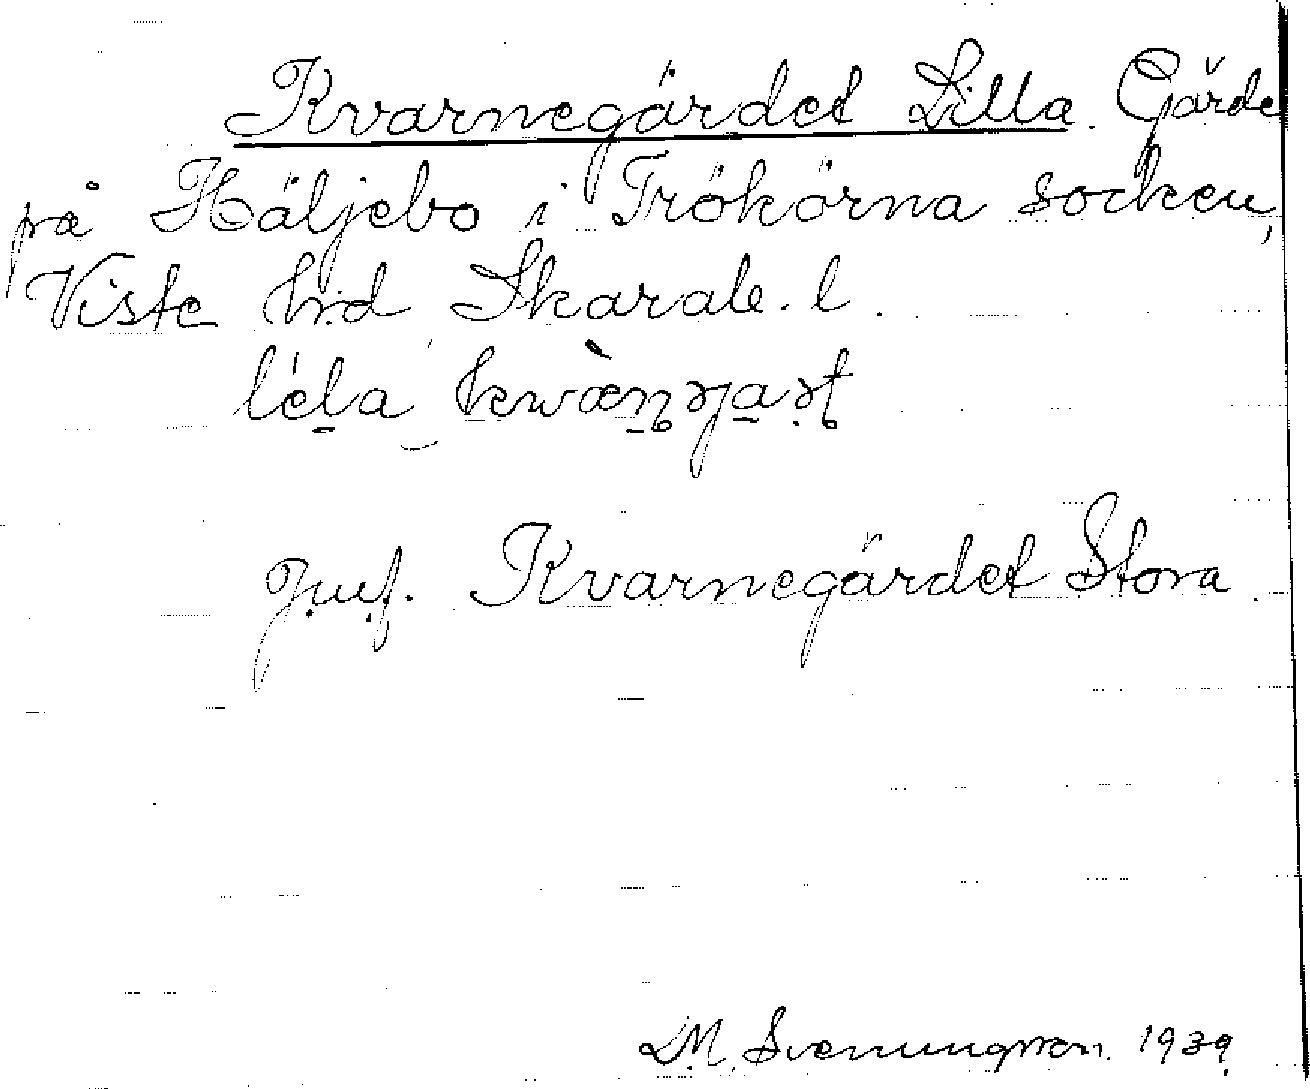 Kvarnegärdet Lilla. Gärde
på Häljebo i Trökörna socken,
Viste hrd Skarab. l.
Jmf. Kvarnegärdet Stora.
D.M. Svenningsson. 1939.